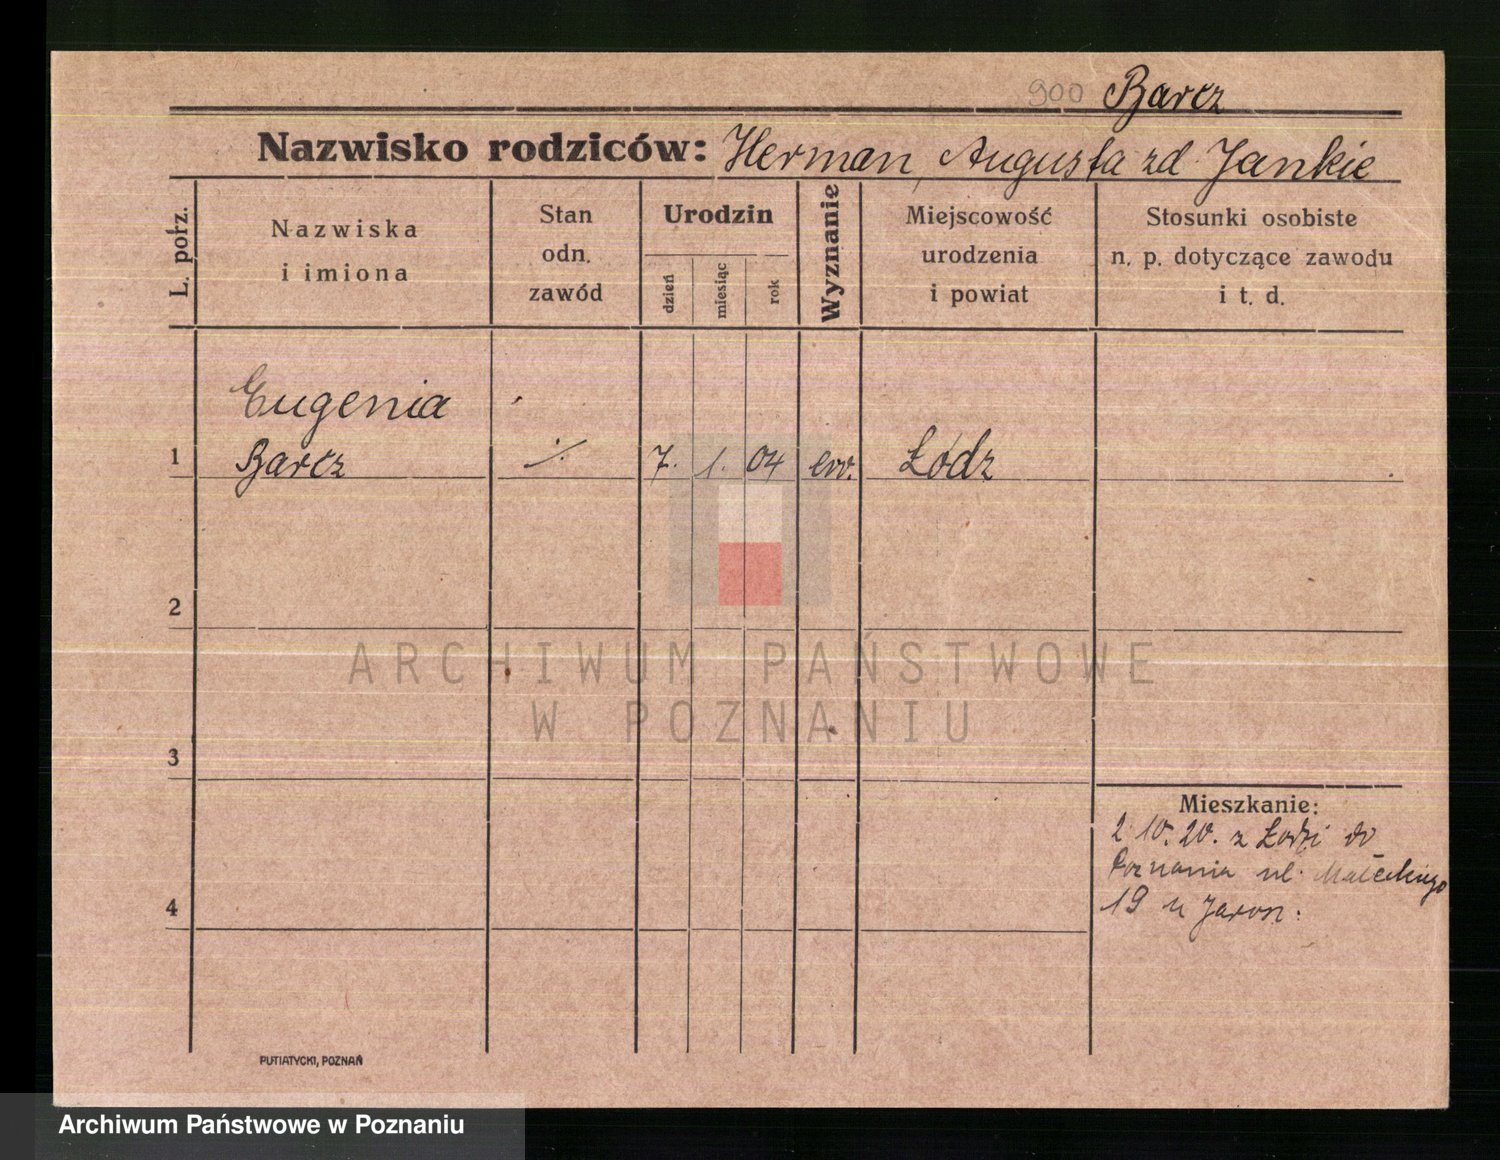 900 Barcz
Nazwisko rodziców: Herman, Augusta zd Jankie
L. porz.
Nazwiska
i imiona
Stan
odn.
zawód
Urodzin
dzień
miesiąc
rok
Wyznanie
Miejscowość
urodzenia
i powiat
Stosunki osobiste
n. p. dotyczące zawodu
i t. d.
Eugenia
1 Barcz ./. 7. 1. 04 ew. Łódz
2
ARCHIWUM PAŃSTWOWE
W POZNANIU
3
Mieszkanie:
2 10. 20. z Łodzi do
Poznania ul. Małeckiego
4
19 u Jaron:
PUTIATYCKI, POZNAŃ
Archiwum Państwowe w Poznaniu